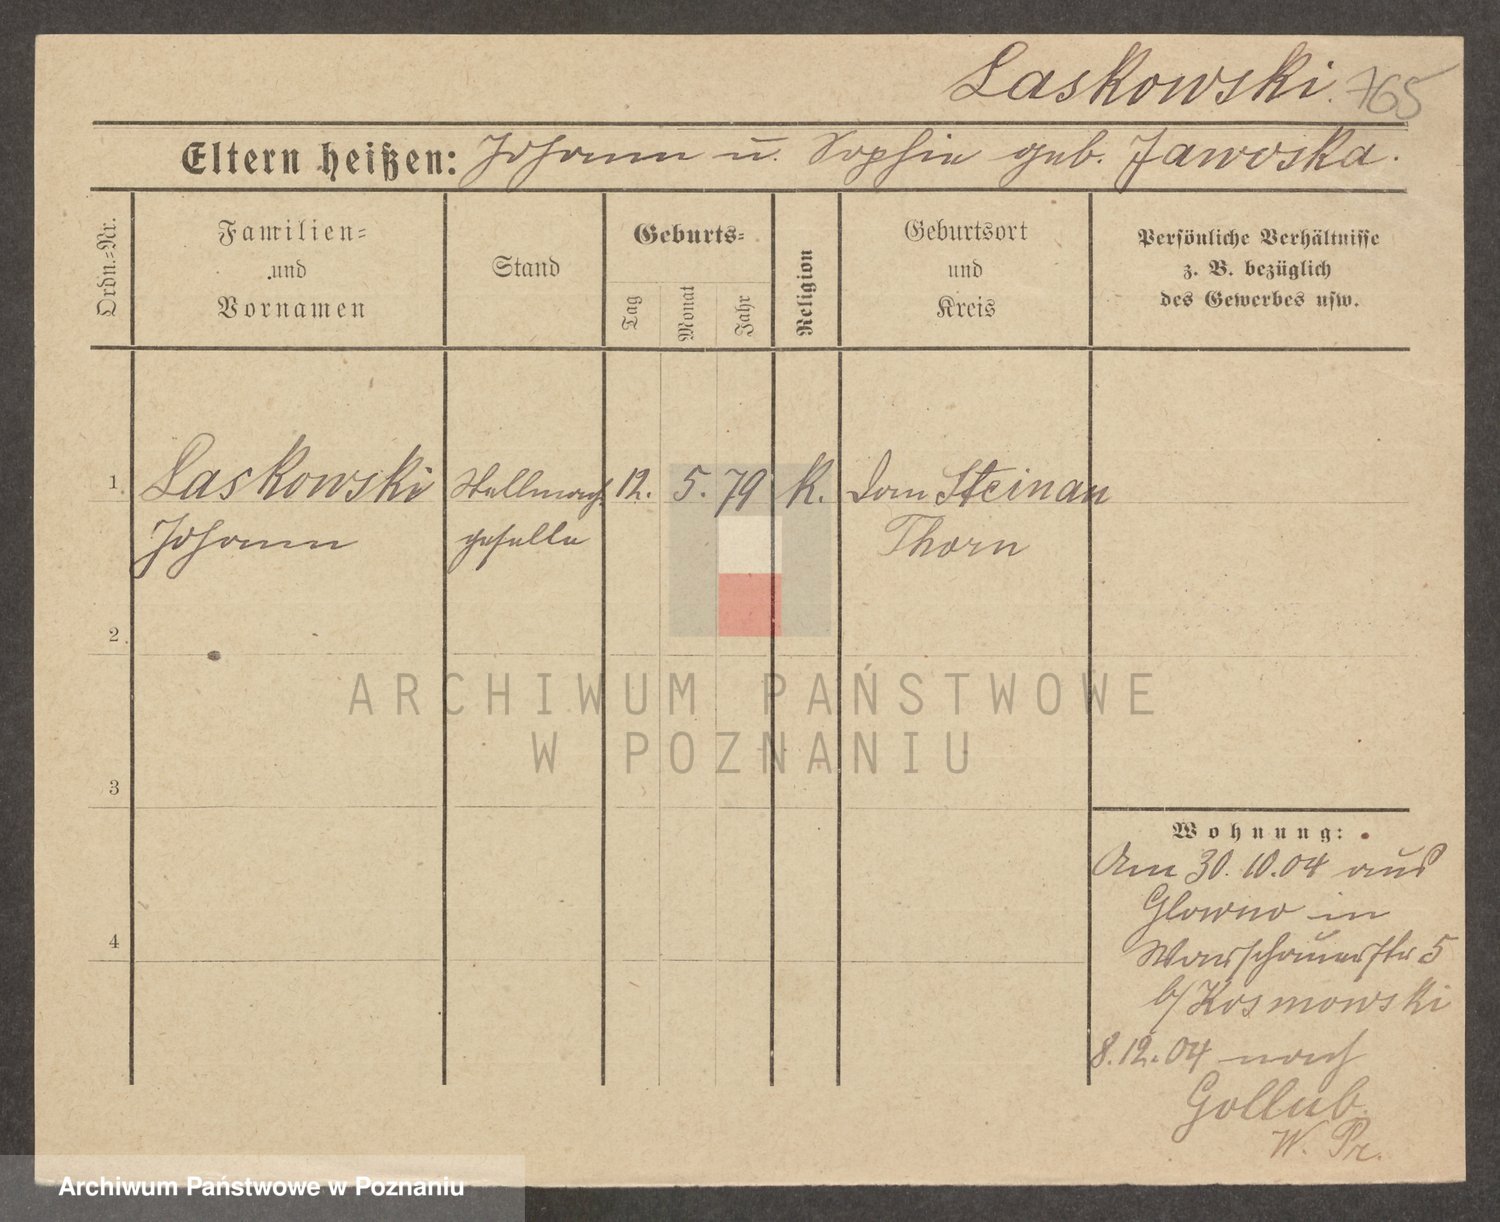 Laskowski. 765
Eltern heißen: Johann u. Sophie geb. Jawoska.
Ordn.-Nr.
Familien-
und
Vornamen
Stand
Geburts-
Tag
Monat
Jahr
Religion
Geburtsort
und
Kreis
Persönliche Verhältnisse
z. B. bezüglich
des Gewerbes usw.
1 Laskowski Stellmach. 12. 5. 79 K. Dom Steinau
Johann geselle Thorn
2
3
4
Wohnung:
Am 30.10.04 aus
Glowno in
Warschauerstr 5
b/Kosmowski
8.12.04 nach
Gollub
W. Pr.
ARCHIWUM PAŃSTWOWE
W POZNANIU
Archiwum Państwowe w Poznaniu